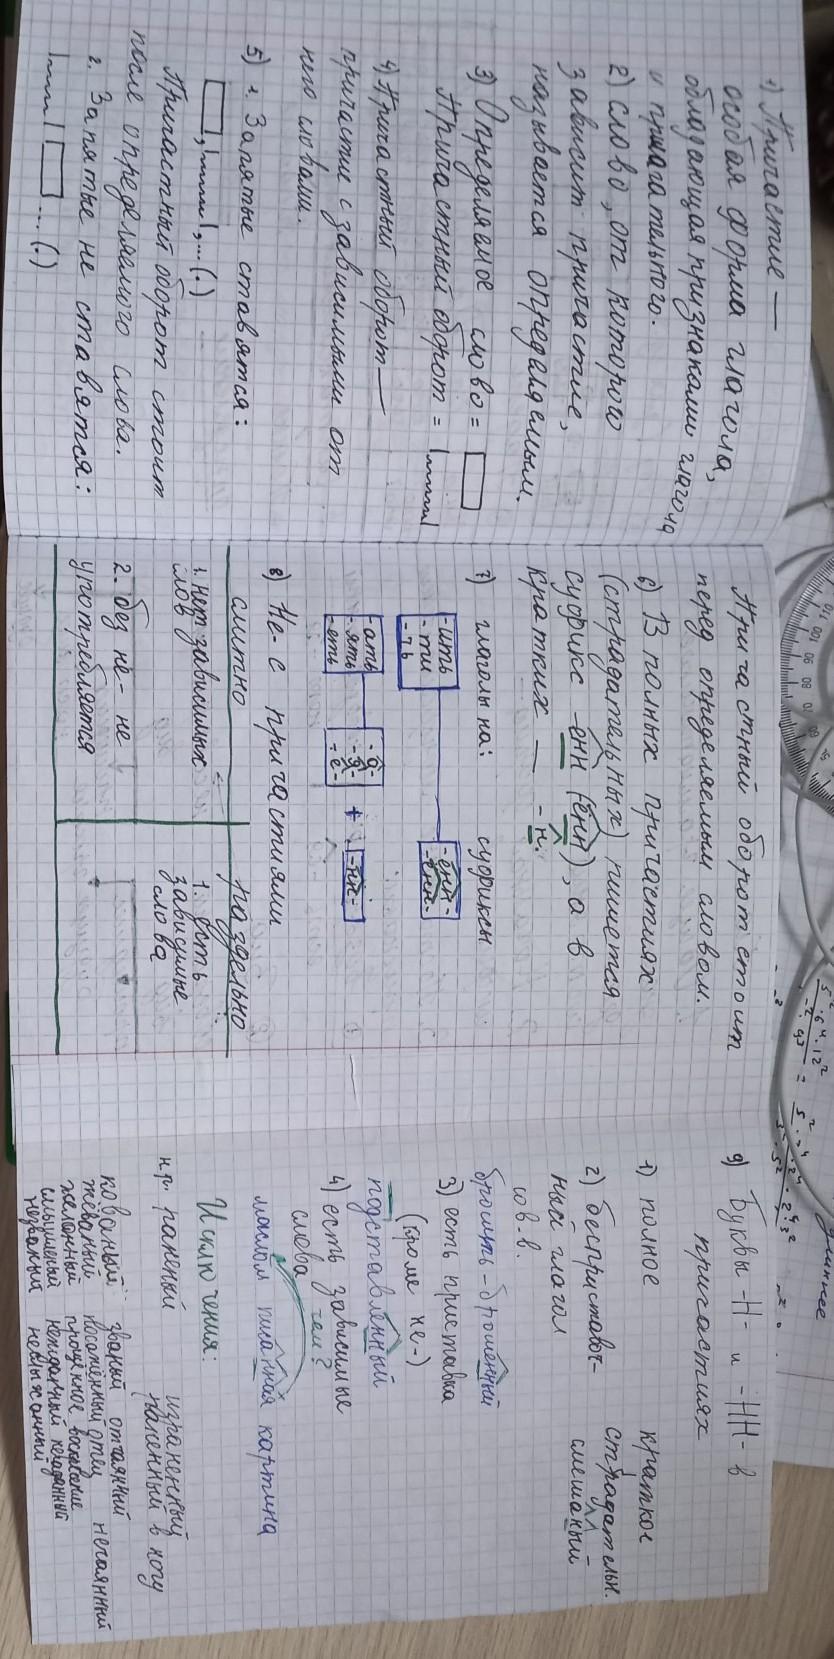 1) Причастие —
особая форма глагола,
обладающая признаками глагола
и прилагательного.
2) слово, от которого
зависит причастие,
называется определяемым.
3) Определяемое слово =
Причастный оборот =
4) Причастный оборот —
причастие с зависимыми от
него словами.
5) 1. Запятые ставятся:
, ... (.)
Причастный оборот стоит
после определяемого слова.
2. Запятые не ставятся:
... (.)
Причастный оборот стоит
перед определяемым словом.
6) В полных причастиях
(страдательных) пишется
суффикс -енн (ённ), а в
кратких — -н.
7) глаголы на: суффиксы
-ить
-ти
-чь
-ённ-
-енн-
-ать
-ять
-еть
-а-
-я-
-е-
+ -нн-
8) Не- с причастиями
слитно раздельно
1. нет зависимых
слов
1. есть
зависимые
слова
2. без не- не
употребляется
9) Буквы -Н- и -НН- в
причастиях
1) полное краткое
2) бесприставоч-
ный глагол
сов. в.
страдательн.
смешаный
бросить - брошенный
3) есть приставка
(кроме не-)
подставленный
4) есть зависимые
слова чем?
маслом писанная картина
Исключения:
н.р. раненый израненный
раненный в ногу
кованый званый отчаянный
жеваный посажённый отец нечаянный
желанный прощенное воскресение
смышленый нежданный негаданный
незваный неслыханный